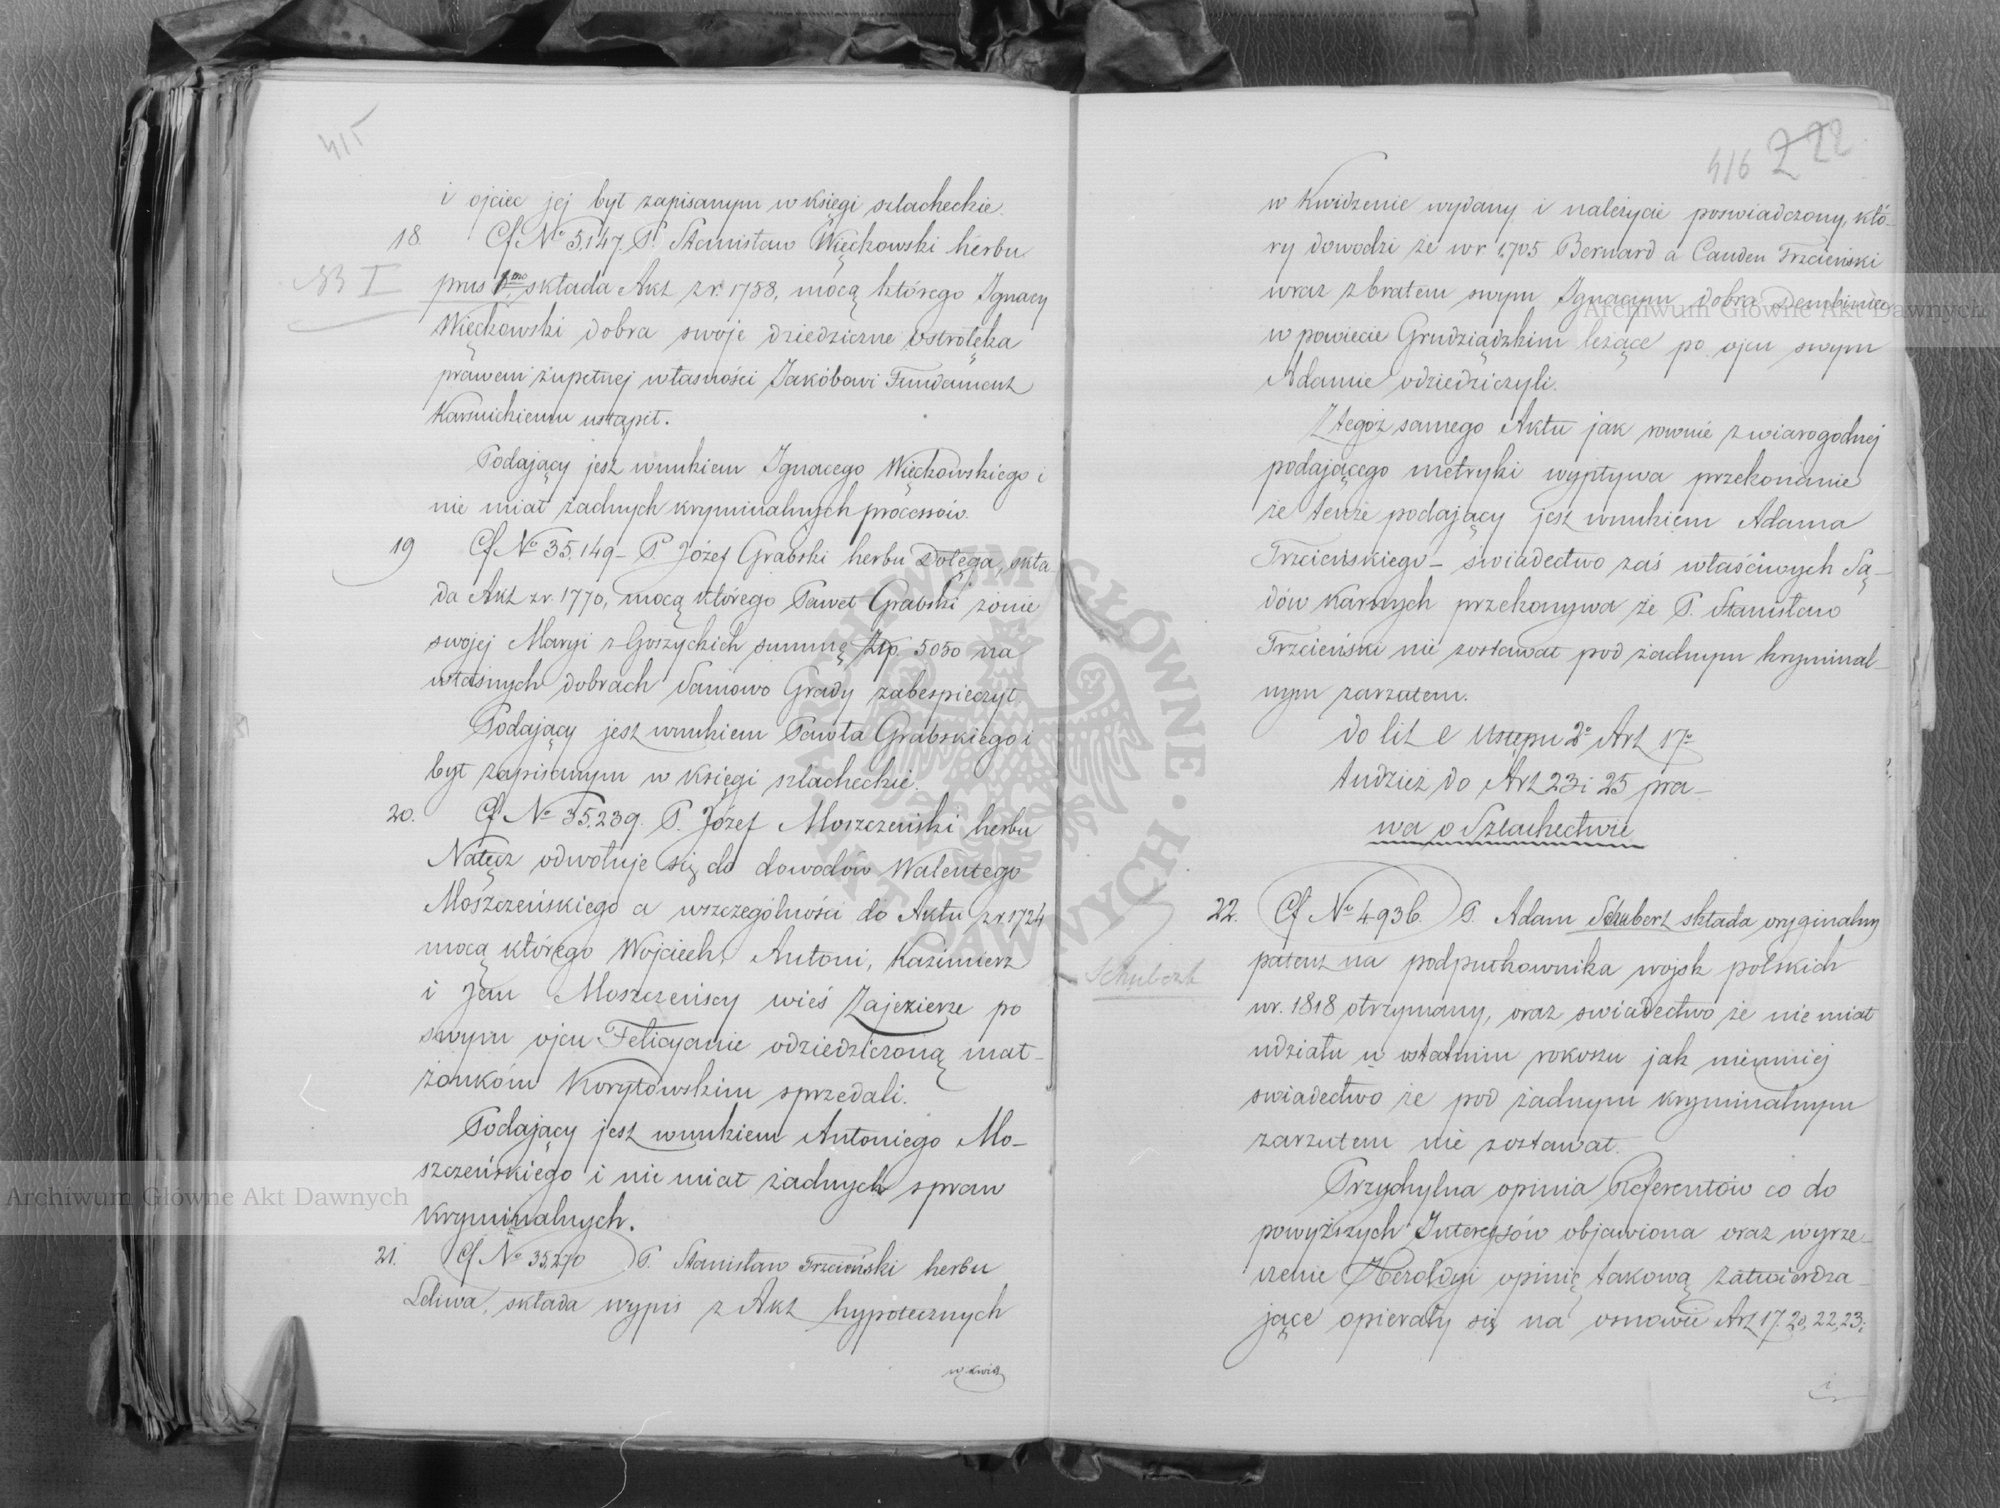 415
i ojciec jej był zapisanym w księgi szlacheckie.
18. Cf No 5,147, P. Stanisław Więckowski herbu
NB I
prus 1mo, składa Akt z r. 1758, mocą którego Ignacy
Więckowski dobra swoje dziedziczne Ostrołęka
prawem zupełnej własności Jakóbowi Fundament
Karsnickiemu ustąpił.
Podający jest wnukiem Ignacego Więckowskiego i
nie miał żadnych kryminalnych processów.
19 Cf No 35,149 – P. Józef Grabski herbu Dołęga, skła-
da Akt z r. 1770, mocą którego Paweł Grabski żonie
swojej Maryi z Goszyckich summę Złp. 5050 na
własnych dobrach Saniowo Grady zabespieczył
Podający jest wnukiem Pawła Grabskiego i
był zapisanym w księgi szlacheckie.
20. Cf No 35,239. P. Józef Moszczeński herbu
Nałęcz odwołuje się do dowodów Walentego
Moszczeńskiego a wszczególności do Aktu z r. 1724
mocą którego Wojciech, Antoni, Kazimierz
i Jan Moszczeńscy wieś Zajezierze po
swym ojcu Felicyanie odziedziczoną mał-
żonkóm Korytowskim sprzedali.
Podający jest wnukiem Antoniego Mo-
szczeńskiego i nie miał żadnych spraw
kryminalnych.
21. Cf No 35,270 P. Stanisław Trzciński herbu
Leliwa, składa wypis z Akt hypotecznych
w Kwid
416 222
w Kwidzenie wydany i należycie poswiadczony, któ-
ry dowodzi że w r. 1705 Bernard a Cauden Trzcieński
wraz z bratem swym Ignacym dobra Dembiniec
w powiecie Grudziądzkim leżące po ojcu swym
Adamie odziedziczyli.
Z tegoż samego Aktu jak rownie z wiarogodnej
podającego metryki wypływa przekonanie
że tenże podający jest wnukiem Adama
Trzcieńskiego – świadectwo zaś właściwych Są-
dów Karnych przekonywa że P. Stanisław
Trzcieński nie zostawał pod żadnym kryminal-
nym zarzutem.
do lit e Ustępu 2o Art 17o
tudzież do Art 23 i 25 pra-
wa o Szlachectwie
22. Cf No 4936. P. Adam Schubert składa oryginalny
Schubert
patent na podpułkownika wojsk polskich
w r. 1818 otrzymany, oraz swiadectwo że nie miał
udziału w ostatnim rokoszu jak niemniej
swiadectwo że pod żadnym kryminalnym
zarzutem nie zostawał.
Przychylna opinia Referentów co do
powyższych Interessów objawiona oraz wyrze-
czenie Heroldyi opinię takową zatwierdza-
jące opierały się na osnowie Art 17. 20, 22, 23,
i
Archiwum Główne Akt Dawnych
Archiwum Główne Akt Dawnych
ARCHIWUM GŁÓWNE AKT DAWNYCH